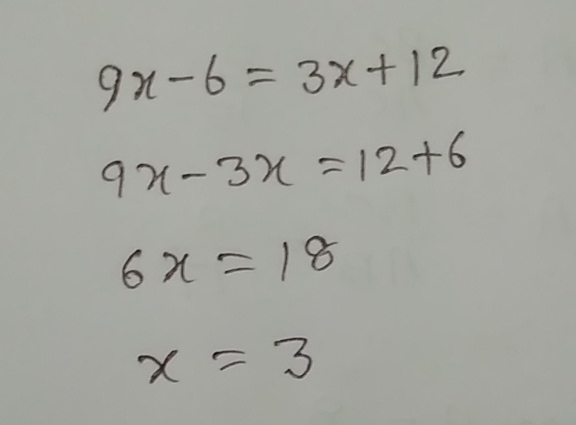 9x-6=3x+12
9x-3x=12+6
6x=18
x=3